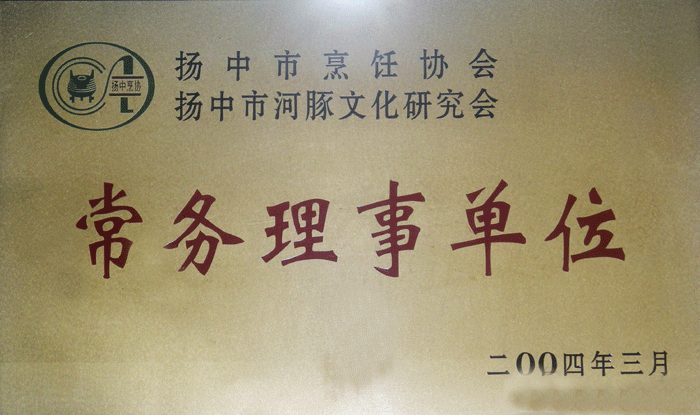 扬中市烹饪协会
扬中烹协
扬中市河豚文化研究会
常务理事单位
二00四年三月